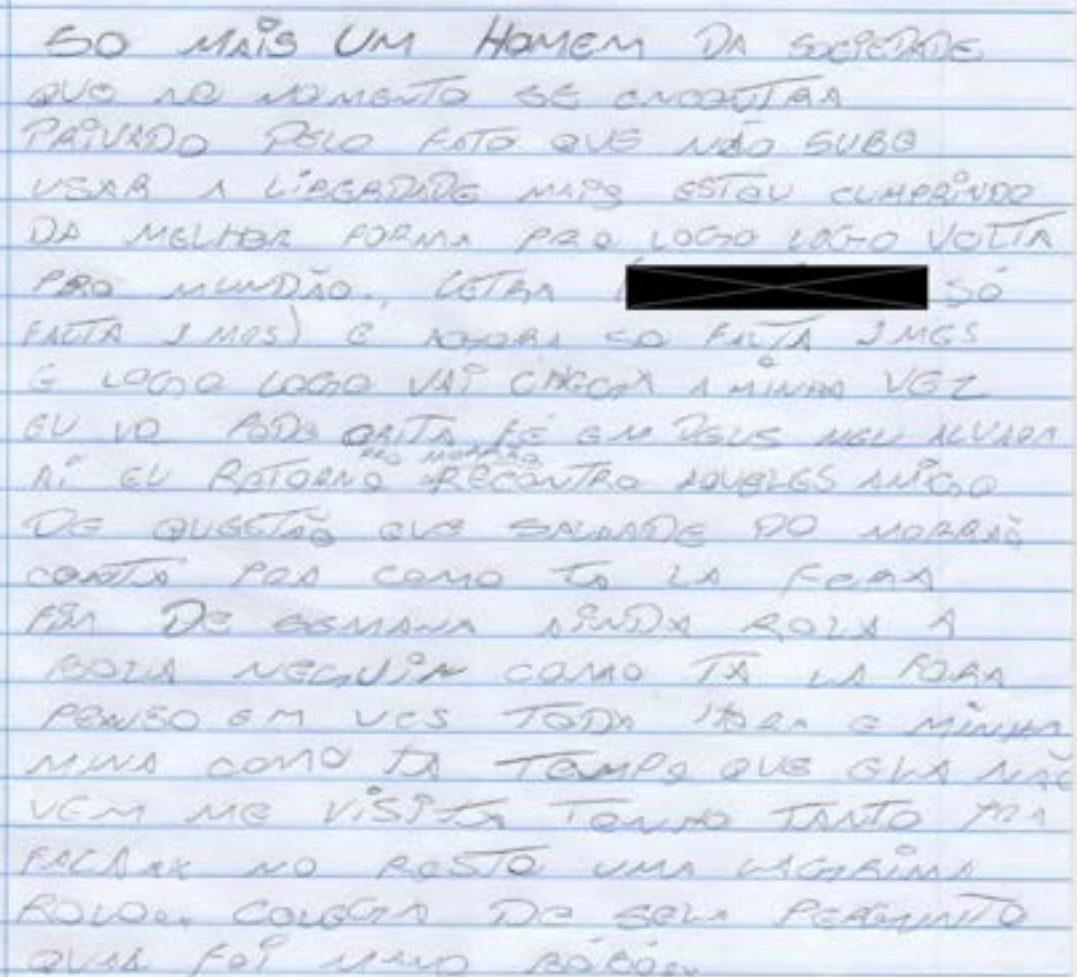 SO MAIS UM HOMEM DA SOCIEDADE
QUE NO MOMENTO SE ENCONTRA
PRIVADO PELO FATO QUE NÃO SUBE
USAR A LIBERDADE MAIS ESTOU CUMPRINDO
DA MELHOR FORMA PRA LOGO LOGO VOLTA
PRO MUNDÃO. LETRA SÓ
FALTA 1 MES) E AGORA SO FALTA 1 MES
E LOGO LOGO VAI CHEGAR A MINHA VEZ
EU VO PODE GRITA FÉ EM DEUS MEU ALVARA
AI EU RETORNO PRO MORRÃO RECONTRO AQUELES AMIGO
DE QUESTÃO QUE SAUDADE DO MORRÃO
CONTA PRA COMO TA LA FORA
FIM DE SEMANA AINDA ROLA A
BOLA NEGUIN COMO TA LA FORA
PENSO EM VCS TODA HORA E MINHA
MINA COMO TA TEMPO QUE ELA NÃO
VEM ME VISITA TENHO TANTO PRA
FALAR NO ROSTO UMA LAGRIMA
ROLO.. COLEGA DE SELA PERGUNTO
QUAL FOI MANO BÓBÓ..